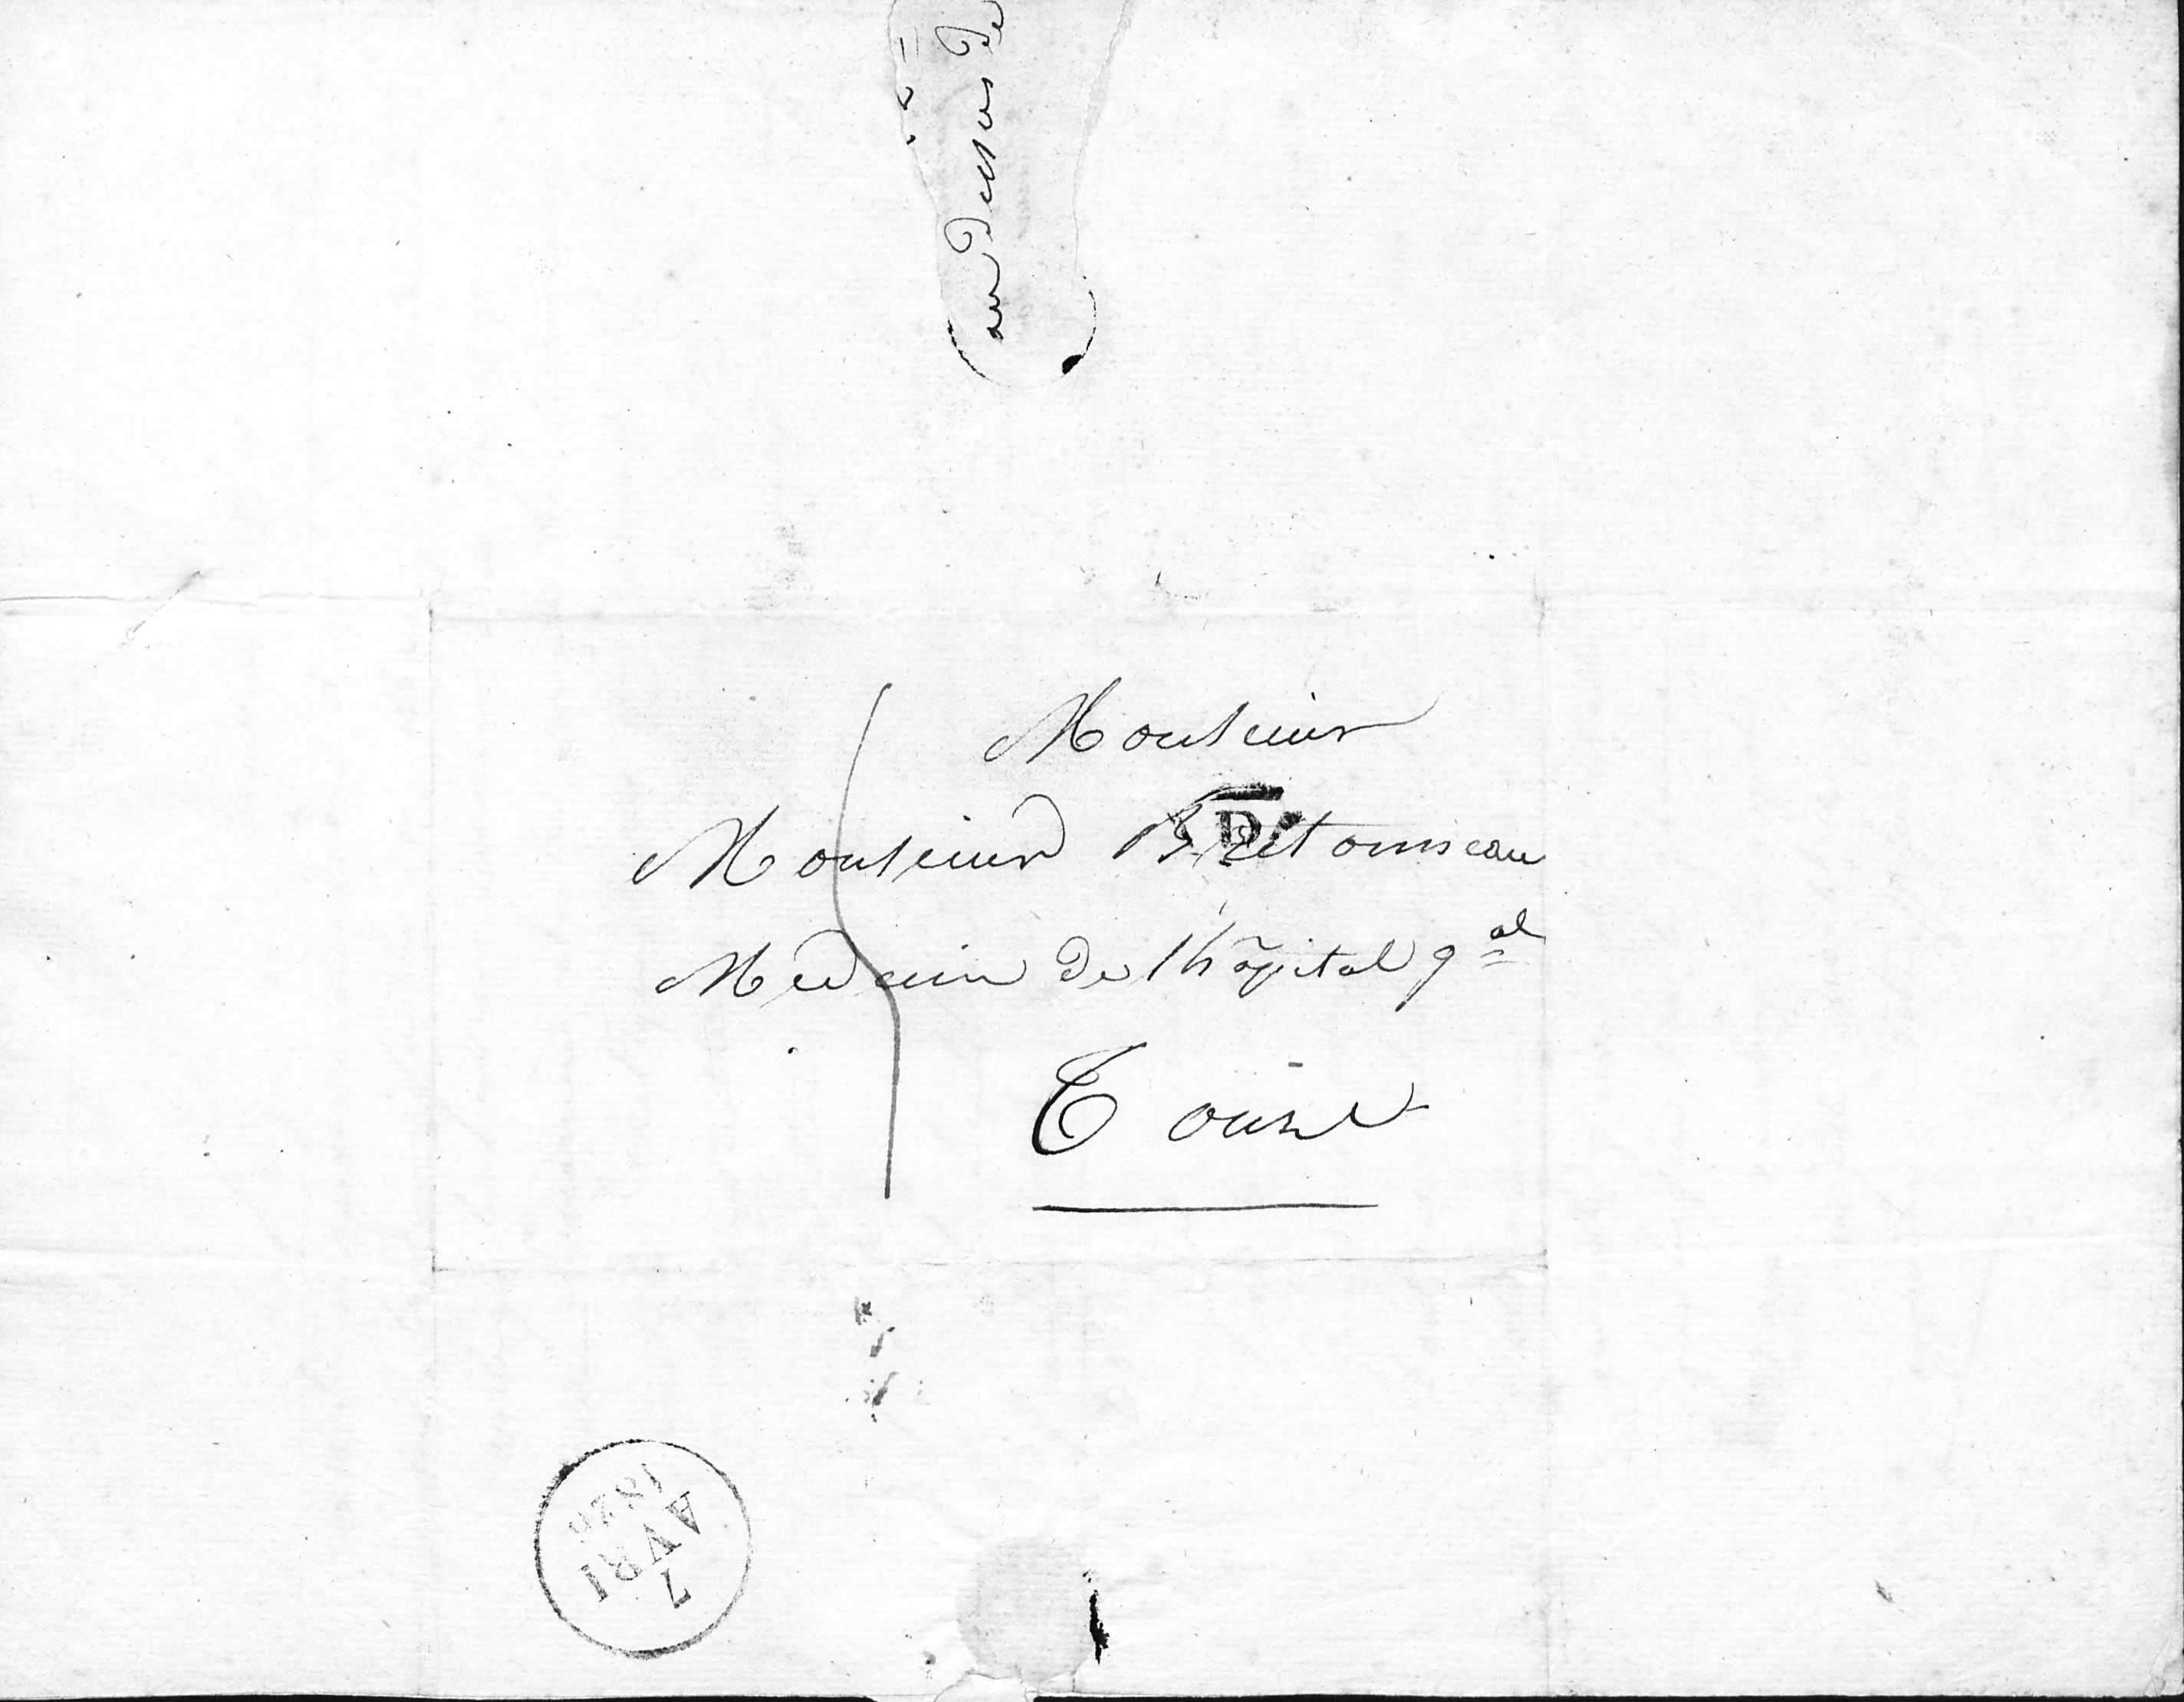 au dessus de
Monsieur
D
Monsieur Bretonneau
Medecin de l'hôpital gal
Tours
7
AVRI
1820